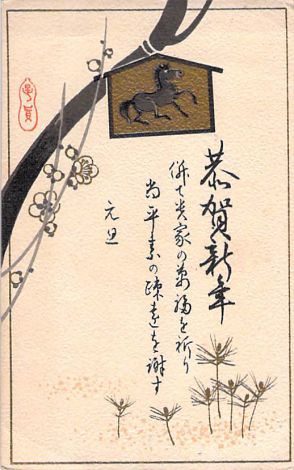 恭賀新年
併て貴家の萬福を祈り
尚平素の疎遠を謝す
元旦